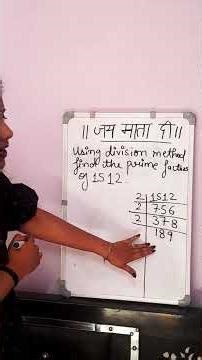 ॥ जय माता दी॥
Using division method
find the prime factors
of 1512.
2 1512
2 756
2 378
189